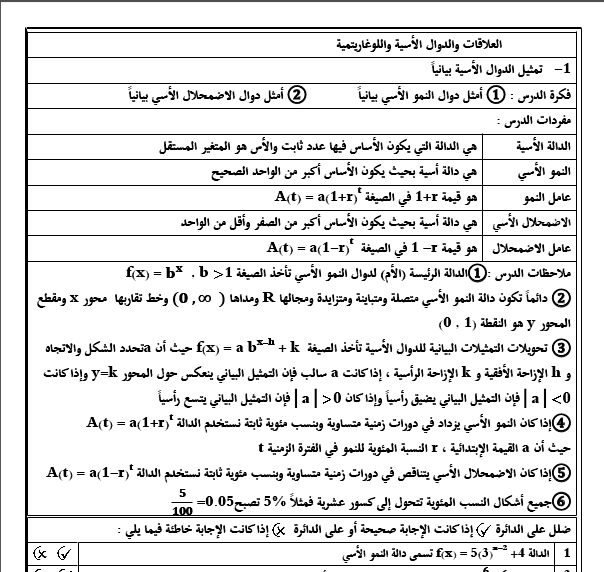 العلاقات والدوال الأسية واللوغاريتمية
1- تمثيل الدوال الأسية بيانياً
فكرة الدرس : ① أمثل دوال النمو الأسي بيانياً ② أمثل دوال الاضمحلال الأسي بيانياً
مفردات الدرس :
الدالة الأسية هي الدالة التي يكون الأساس فيها عدد ثابت والأس هو المتغير المستقل
النمو الأسي هي دالة أسية بحيث يكون الأساس أكبر من الواحد الصحيح
عامل النمو هو قيمة 1+r في الصيغة A(t) = a(1+r)^t
الاضمحلال الأسي هي دالة أسية بحيث يكون الأساس أكبر من الصفر وأقل من الواحد
عامل الاضمحلال هو قيمة 1 –r في الصيغة A(t) = a(1–r)^t
ملاحظات الدرس :①الدالة الرئيسة (الأم) لدوال النمو الأسي تأخذ الصيغة f(x) = b^x , b >1
② دائماً تكون دالة النمو الأسي متصلة ومتباينة ومتزايدة ومجالها R ومداها (0 , ∞) وخط تقاربها محور x ومقطع
المحور y هو النقطة (0 , 1)
③ تحويلات التمثيلات البيانية للدوال الأسية تأخذ الصيغة f(x) = a b^x–h + k حيث أن aتحدد الشكل والاتجاه
و h الإزاحة الأفقية و k الإزاحة الرأسية ، إذا كانت a سالب فإن التمثيل البياني ينعكس حول المحور y=k وإذا كانت
| a | <0 فإن التمثيل البياني يضيق رأسياً وإذا كان | a | >0 فإن التمثيل البياني يتسع رأسياً
④إذا كان النمو الأسي يزداد في دورات زمنية متساوية وبنسب مئوية ثابتة نستخدم الدالة A(t) = a(1+r)^t
حيث أن a القيمة الإبتدائية ، r النسبة المئوية للنمو في الفترة الزمنية t
⑤إذا كان الاضمحلال الأسي يتناقص في دورات زمنية متساوية وبنسب مئوية ثابتة نستخدم الدالة A(t) = a(1–r)^t
⑥جميع أشكال النسب المئوية تتحول إلى كسور عشرية فمثلاً 5% تصبح 0.05= 5/100
ظلل على الدائرة ✓ إذا كانت الإجابة صحيحة أو على الدائرة × إذا كانت الإجابة خاطئة فيما يلي :
1 الدالة f(x) = 5(3)^x–2 +4 تسمى دالة النمو الأسي ✓ ×